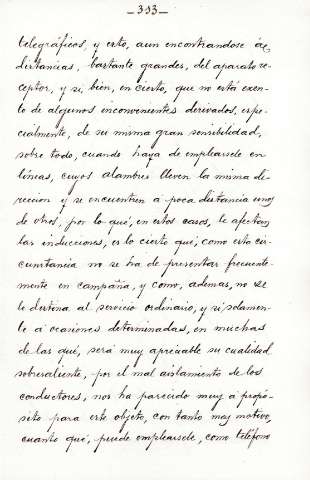 -353-
telegráficos, y esto, aun encontrandose á
distancias, bastante grandes, del aparato re-
ceptor, y si, bien, en cierto, que no está exen-
to de algunos inconvenientes derivados, espe-
cialmente, de su misma gran sensibilidad,
sobre todo, cuando haya de emplearsele en
líneas, cuyos alambres lleven la misma di-
reccion y se encuentren a poca distancia unos
de otros, por lo qué, en estos casos, le afectan
las inducciones, es lo cierto qué, como esta cir-
cunstancia no se ha de presentar frecuente-
mente en campaña, y como, ademas, no se
le destina al servicio ordinario, y si solamen-
te á ocasiones determinadas, en muchas
de las qué, será muy apreciable su cualidad
sobresaliente, por el mal aislamiento de los
conductores, nos ha parecido muy a propó-
sito para este objeto, con tanto mas motivo,
cuanto qué, puede emplearsele, como teléfono